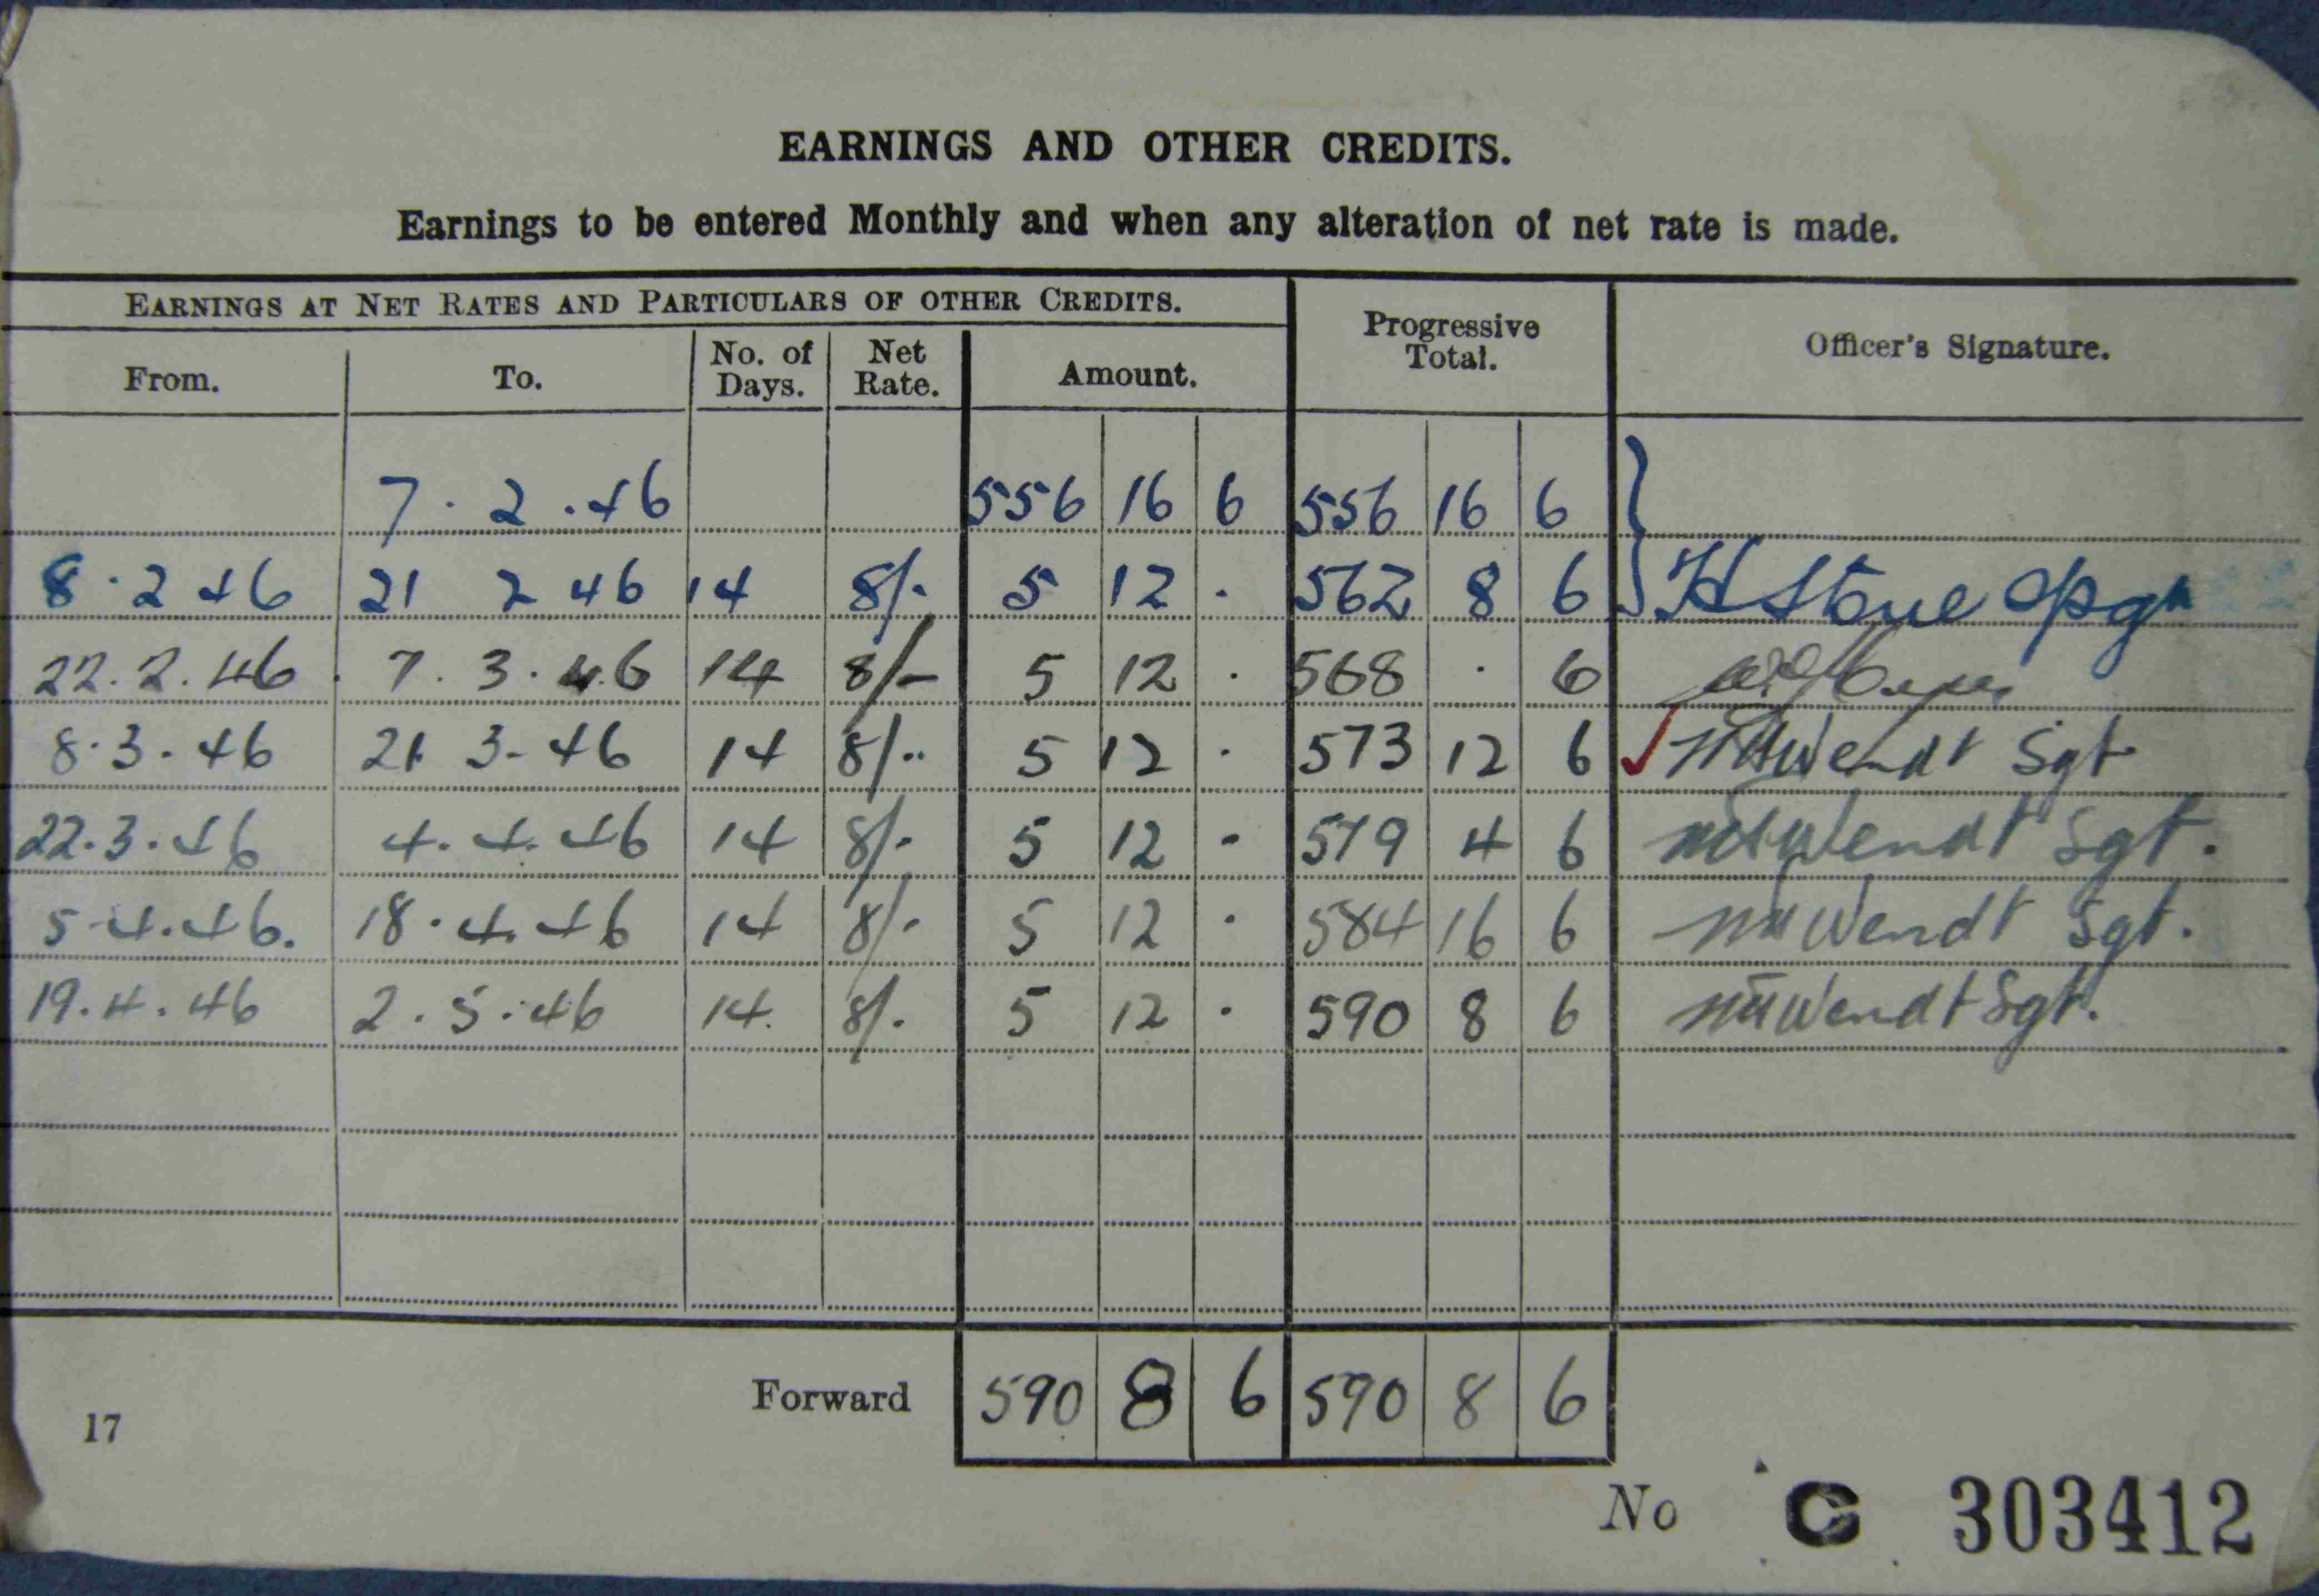 EARNINGS AND OTHER CREDITS.
Earnings to be entered Monthly and when any alteration of net rate is made.
EARNINGS AT NET RATES AND PARTICULARS OF OTHER CREDITS.
Progressive Total.
Officer's Signature.
From. To. No. of Days. Net Rate. Amount.
7.2.46 556 16 6 556 16 6
8.2 46 21 2 46 14 8/- 5 12 . 562 8 6 H Stone
22.2.46 7.3.46 14 8/- 5 12 . 568 . 6
8.3.46 21 3-46 14 8/- 5 12 . 573 12 6 Wendt Sgt
22.3.46 4.4.46 14 8/- 5 12 - 579 4 6 Wendt Sgt.
5-4.46. 18.4.46 14 8/- 5 12 . 584 16 6 Wendt Sgt.
19.4.46 2.5.46 14. 8/- 5 12 . 590 8 6 Wendt Sgt.
Forward 590 8 6 590 8 6
17
No C 303412